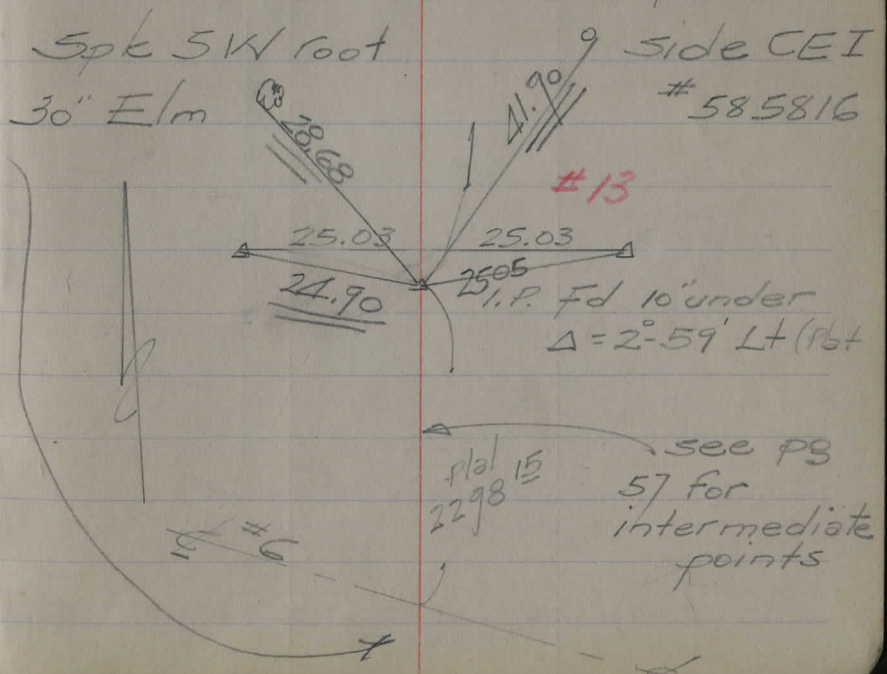 Spk SW root
30" Elm
Side CEI
# 585816
28.68
41.90
# 13
25.03
25.03
24.90
25.05
I.P. Fd 10" under
Δ = 2°-59' Lt (Plat
see pg
57 for
intermediate
points
plat
2298 15
# 6